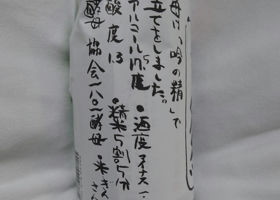 母は「吟の精」で
立てをしました。
アルコール17.5度
●酒度 マイナス一.
酸度1.3
●精米5割5分
酵母 協会一八〇一酵母